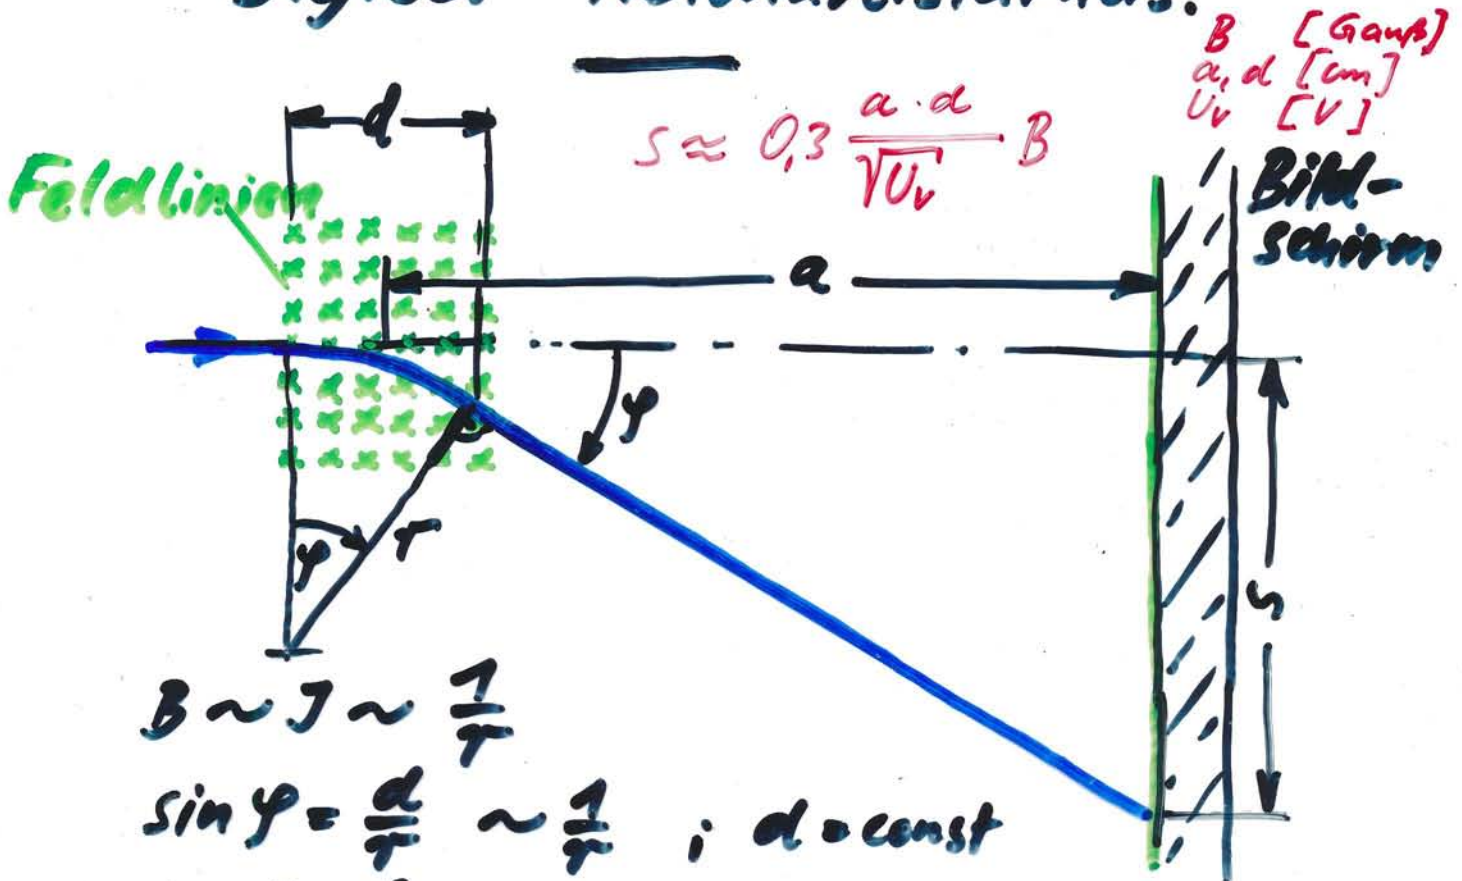 B [Gauß]
a, d [cm]
U_v [V]
d
s ≈ 0,3 \frac{a \cdot d}{\sqrt{U_v}} B
Feldlinien
Bild-
schirm
a
φ
φ
r
s
B ~ J ~ \frac{1}{r}
sin φ = \frac{d}{r} ~ \frac{1}{r} ; d = const